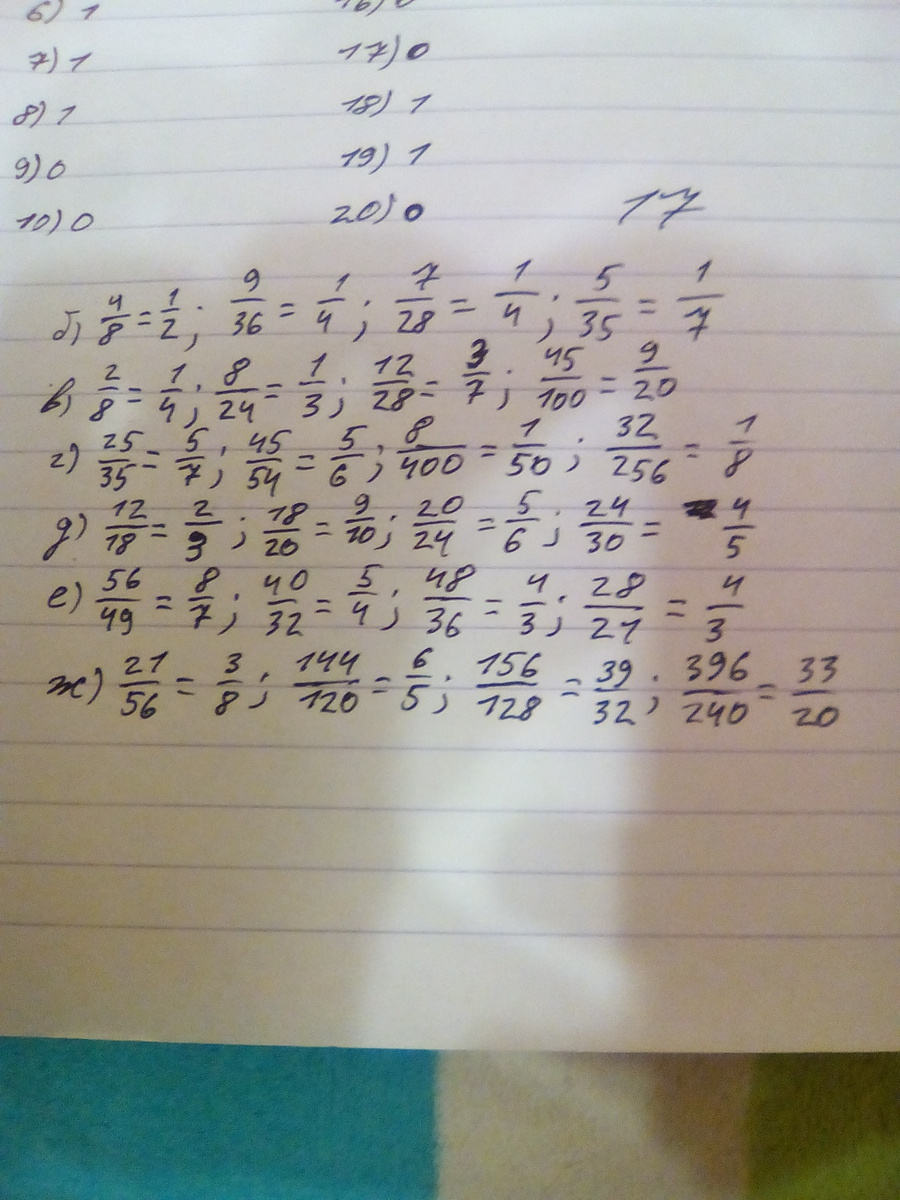 6) 1 16) 0
7) 1 17) 0
8) 1 18) 1
9) 0 19) 1
10) 0 20) 0 17
б) 4/8 = 1/2; 9/36 = 1/4; 7/28 = 1/4; 5/35 = 1/7
в) 2/8 = 1/4; 8/24 = 1/3; 12/28 = 3/7; 45/100 = 9/20
г) 25/35 = 5/7; 45/54 = 5/6; 8/400 = 1/50; 32/256 = 1/8
д) 12/18 = 2/3; 18/20 = 9/10; 20/24 = 5/6; 24/30 = 4/5
е) 56/49 = 8/7; 40/32 = 5/4; 48/36 = 4/3; 28/21 = 4/3
ж) 21/56 = 3/8; 144/120 = 6/5; 156/128 = 39/32; 396/240 = 33/20